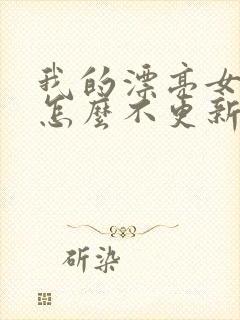 我的漂亮女
怎麼不更新
斫染